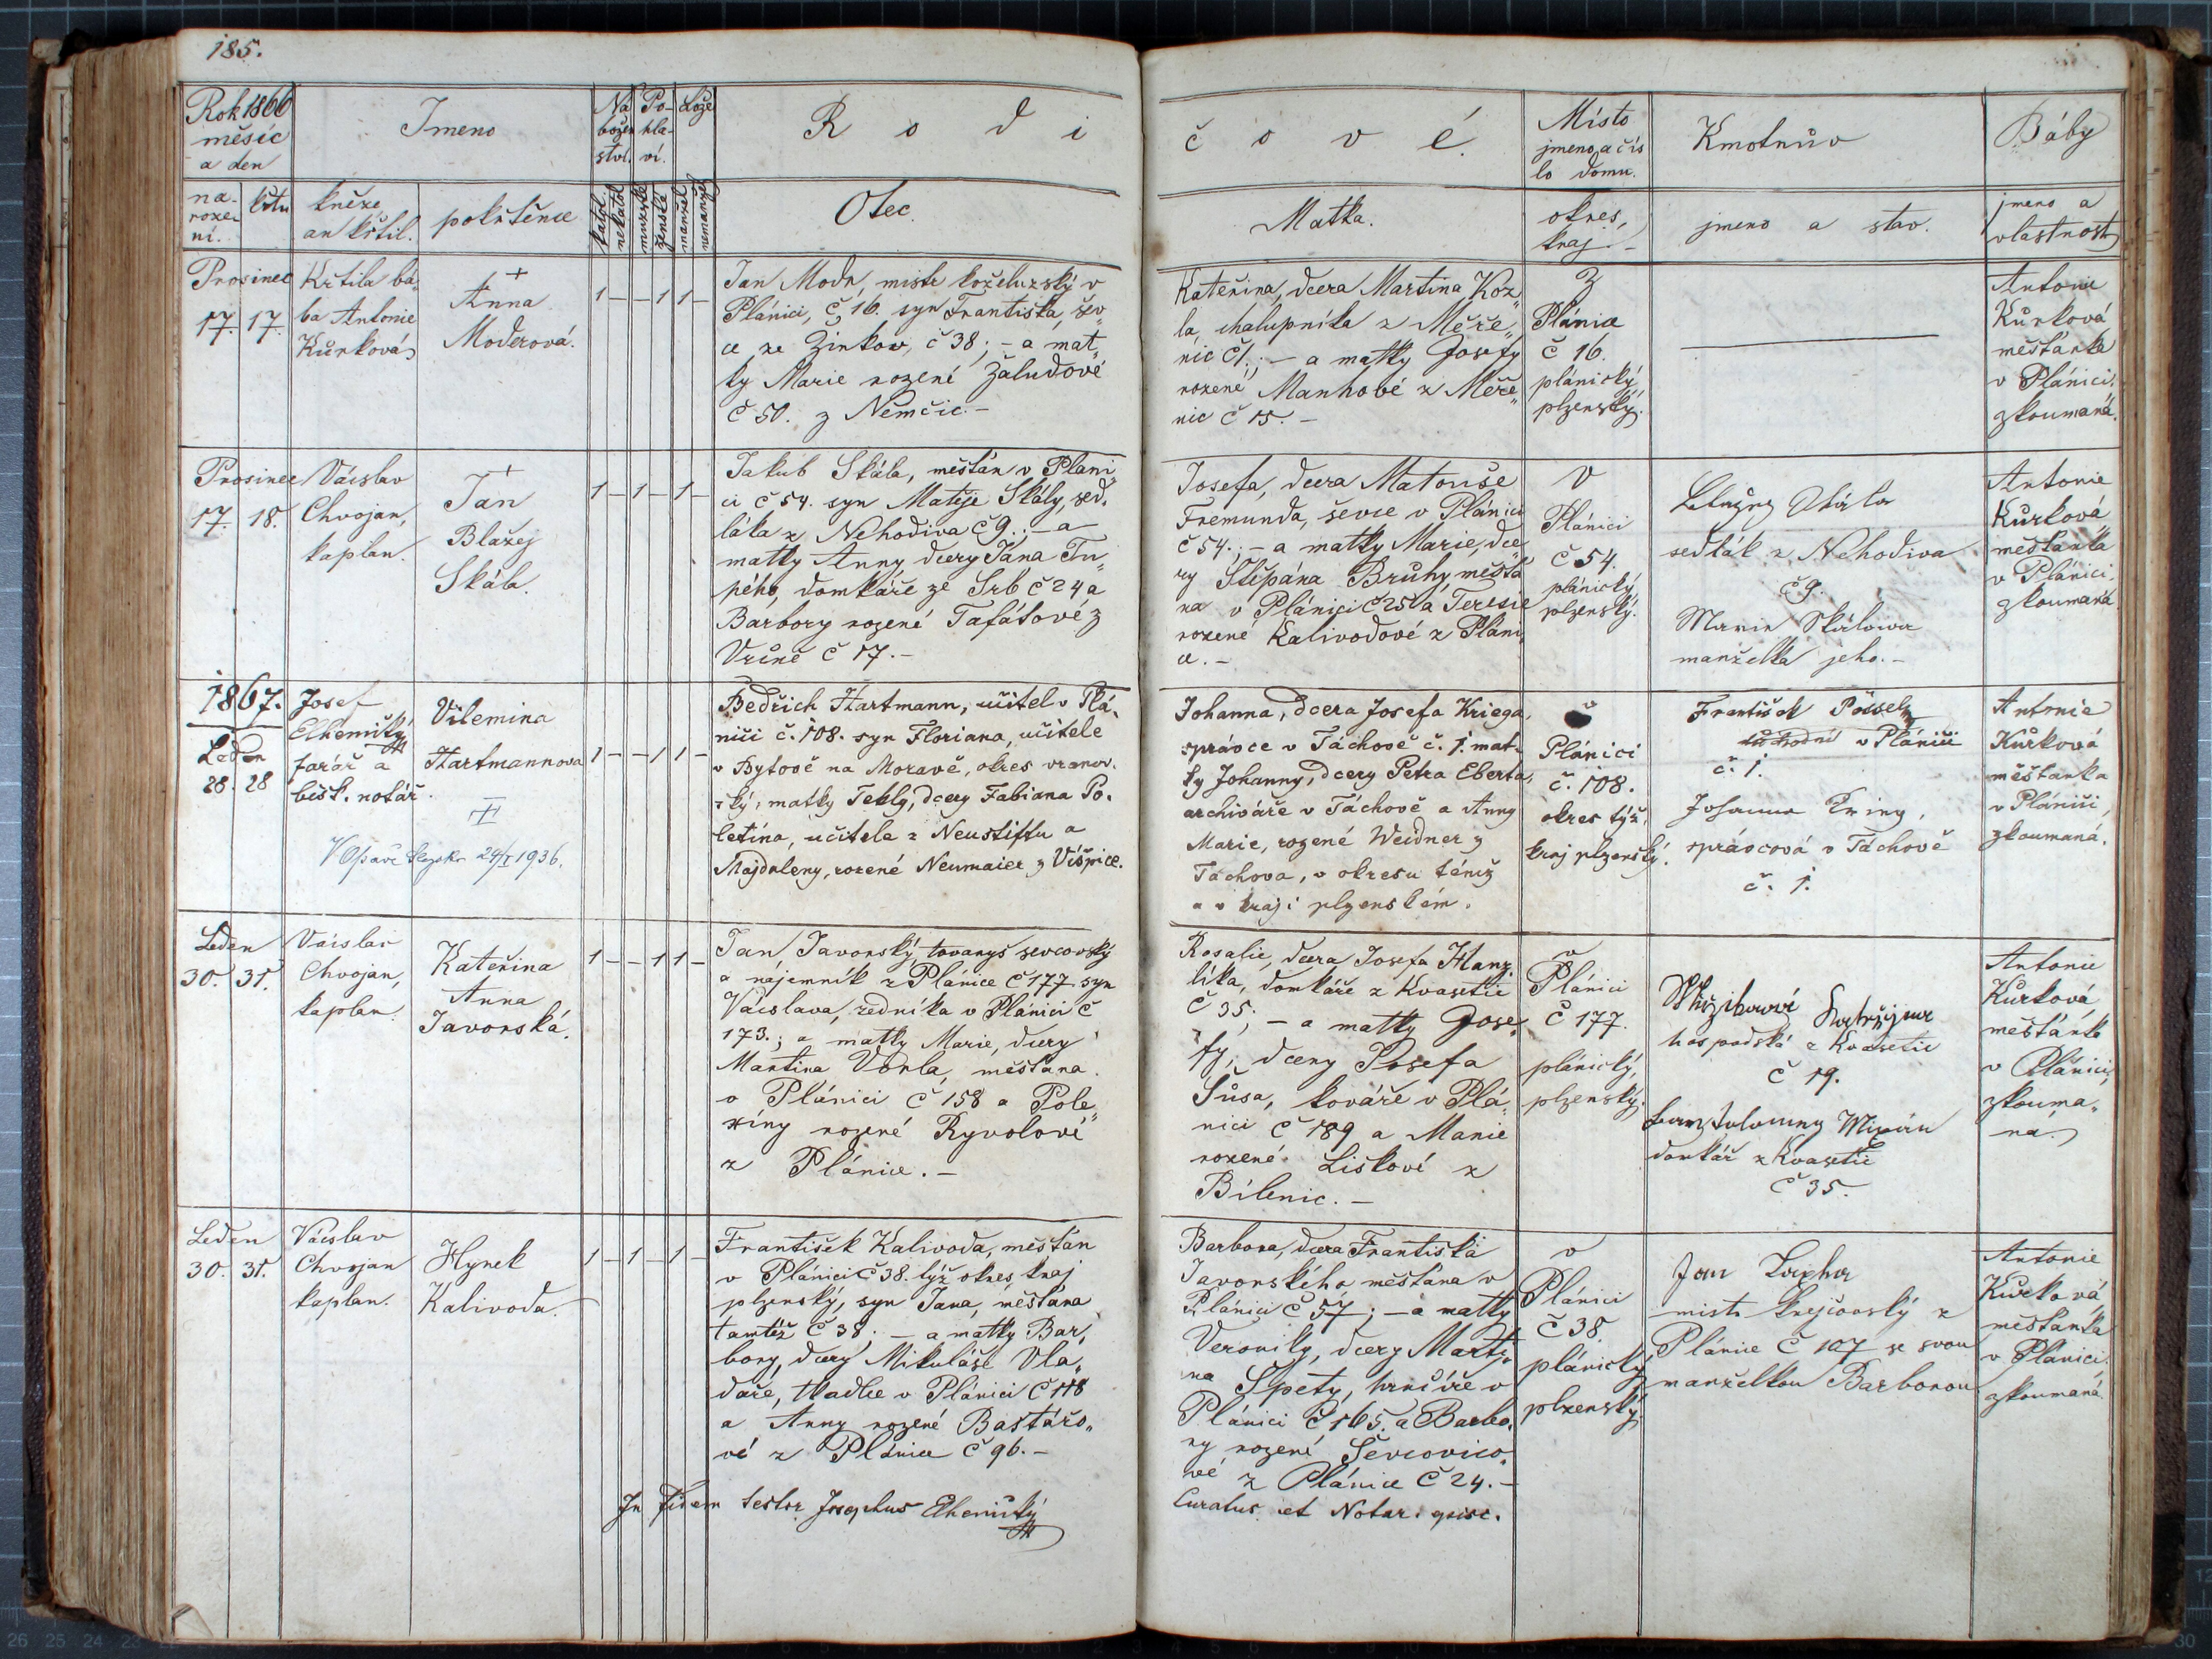 185.
Rok 1866
měsíc
a den
Jmeno
Na
božen
ství.
Po-
hla-
ví.
Lože
R o d i
č o v é.
Místo
jmeno a čís
lo domu.
Kmotrův
Báby
na-
roze-
ní.
křtu
kněze
an křtil.
pokřtěnce
katol.
nekatol.
mužské
ženské
manžel.
nemanžel.
Otec.
Matka.
okres,
kraj.
jmeno a stav.
jmeno a
vlastnost
Prosinec
17. 17.
Křtila bá„
ba Antonie
Kůrková
+
Anna
Moderová.
1 — — 1 1 —
Jan Modr, mistr koželuzský v
Plánici, č 16. syn Františka, šev„
ce ze Žinkov, č 38; – a mat„
ky Marie rozené Žaludové
č 50. z Němčic. –
Kateřina, dcera Martina Koz„
la, chalupníka z Měře„
nic č 1.; – a matky Josefy
rozené Manhové z Měře„
nic č 15. –
Z
Plánice
č 16.
plánický,
plzenský.
Antonie
Kůrková
měšťanka
v Plánici.
zkoumaná.
Prosinec
17. 18.
Vácslav
Chvojan,
kaplan.
+
Jan
Blažej
Skála.
1 — 1 — 1 —
Jakub Skála, měšťan v Pláni„
ci č 54. syn Matěje Skály, sed„
láka z Nehodiva č 9.; – a
matky Anny dcery Jana Tu„
pého, domkáře ze Srb č 24 a
Barbory rozené Tafátové z
Vrčně č 17. –
Josefa, dcera Matouše
Fremunda, ševce v Plánici
č 54.; – a matky Marie, dce„
ry Štěpána Brůhy, měšťa„
na v Plánici č 25 a Teresie
rozené Kalivodové z Pláni„
ce. –
V
Plánici
č 54.
plánický,
plzenský.
Skála
sedlák z Nehodiva
č 9.
Marie Skálowa
manželka jeho. –
Antonie
Kůrková
měšťanka
v Plánici.
zkoumaná.
1867.
Leden
28. 28
Josef
Elhenický
farář a
bisk. notář.
Vilemina
Hartmannova
V Opavě 24/I 1936.
1 — — 1 1 —
Bedřich Hartmann, učitel v Plá„
nici č. 108. syn Floriana, učitele
v Bytově na Moravě, okres vranov.
ský, matky Tekly, dcery Fabiana Po„
letína, učitele z Neustiftu a
Majdaleny, rozené Neumaier z Višnice.
Johanna, dcera Josefa Kriega,
správce v Táchově č. 1. mat„
ky Johanny, dcery Petra Eberta,
archiváře v Táchově a Anny
Marie, rozené Weidner z
Táchova, v okresu témž
a v kraji plzenském.
v
Plánici
č. 108.
okres týž,
kraj plzenský.
František Pössel
v Plánici
č. 1.
Johanna Krieg,
správcová v Táchově
č. 1.
Antonie
Kůrková
měšťanka
v Plánici,
zkoumaná.
Leden
30. 31.
Vácslav
Chvojan,
kaplan.
Kateřina
Anna
Javorská.
1 — — 1 1 —
Jan Javorský, tovaryš ševcovský
a nájemník z Plánice č 177. syn
Vácslava, zedníka v Plánici č
173.; a matky Marie, dcery
Martina Vorla, měšťana
v Plánici č 158 a Pole„
xiny rozené Ryvolové
z Plánice. –
Rosalie, dcera Josefa Hanz„
líka, domkáře z Kvasetic
č 35; – a matky Jose„
fy, dcery Josefa
Šůsa, kováře v Plá„
nici č 189 a Marie
rozené Liškové z
Bílenic. –
v
Plánici
č 177.
plánický,
plzenský.
hospodská z Kvasetic
č 19.
domkář z Kvasetic
č 35.
Antonie
Kůrková,
měšťanka
v Plánici,
zkouma„
ná.
Leden
30. 31.
Vácslav
Chvojan
kaplan.
Hynek
Kalivoda.
1 — 1 — 1 —
František Kalivoda, měšťan
v Plánici č 38. týž okres, kraj
plzenský, syn Jana, měšťana
tamtéž č 38. – a matky Bar„
bory, dcery Mikuláše Vla„
daře, tkadlce v Plánici č 118
a Anny rozené Bastářo„
vé z Plánice č 96. –
Barbora, dcera Františka
Javorského měšťana v
Plánici č 57; – a matky
Veroniky, dcery Marti„
na Špety, hrnčíře v
Plánici č 165. a Barbo„
ry rozené Ševcovico„
vé z Plánice č 24. –
v
Plánici
č 38.
plánický
plzenský.
Jan
mistr krejčovský z
Plánice č 107 se svou
manželkou Barborou
Antonie
Kůrková
měšťanka
v Plánici.
zkoumaná.
In fidem testor Josephus Elhenický
Curatus et Notar. episc.